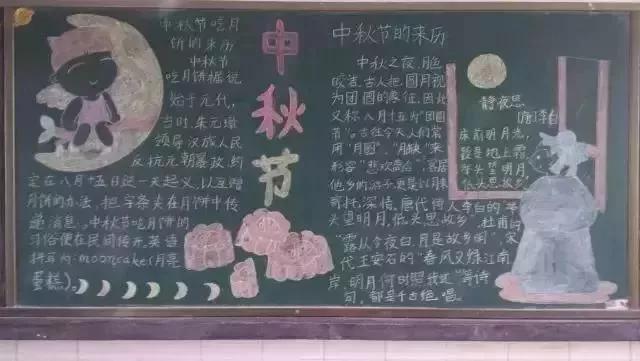 中秋节吃月
饼的来历
中秋节
吃月饼据说
始于元代，
当时，朱元璋
领导汉族人民
反抗元朝暴政，约
定在八月十五日这一天起义，以互赠
月饼的办法，把字条夹在月饼中传
递消息。中秋节吃月饼的
习俗便在民间传开，英语
拼写为：mooncake(月亮
蛋糕)。
中
秋
节
中秋节的来历
中秋之夜，月色
皎洁，古人把圆月视
为团圆的象征，因此，
又称八月十五为“团圆
节”。古往今天人们常
用“月圆”、“月缺”来
形容“悲欢离合”，客居
他乡的游子，更是以月来
寄托深情。唐代诗人李白的“举
头望明月，低头思故乡”，杜甫的
“露从今夜白，月是故乡明”，宋
代王安石的“春风又绿江南
岸，明月何时照我还”等诗
句，都是千古绝唱。
静夜思
(唐)李白
床前明月光，
疑是地上霜，
举头望明月，
低头思故乡。